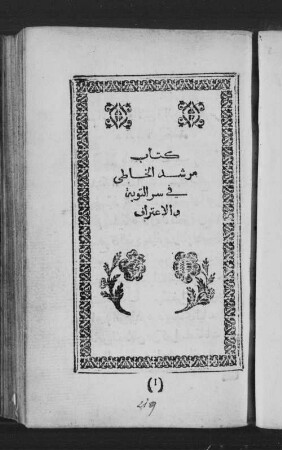 كتاب
مرشد الخاطي
في سر التوبة
والاعتراف
(1)